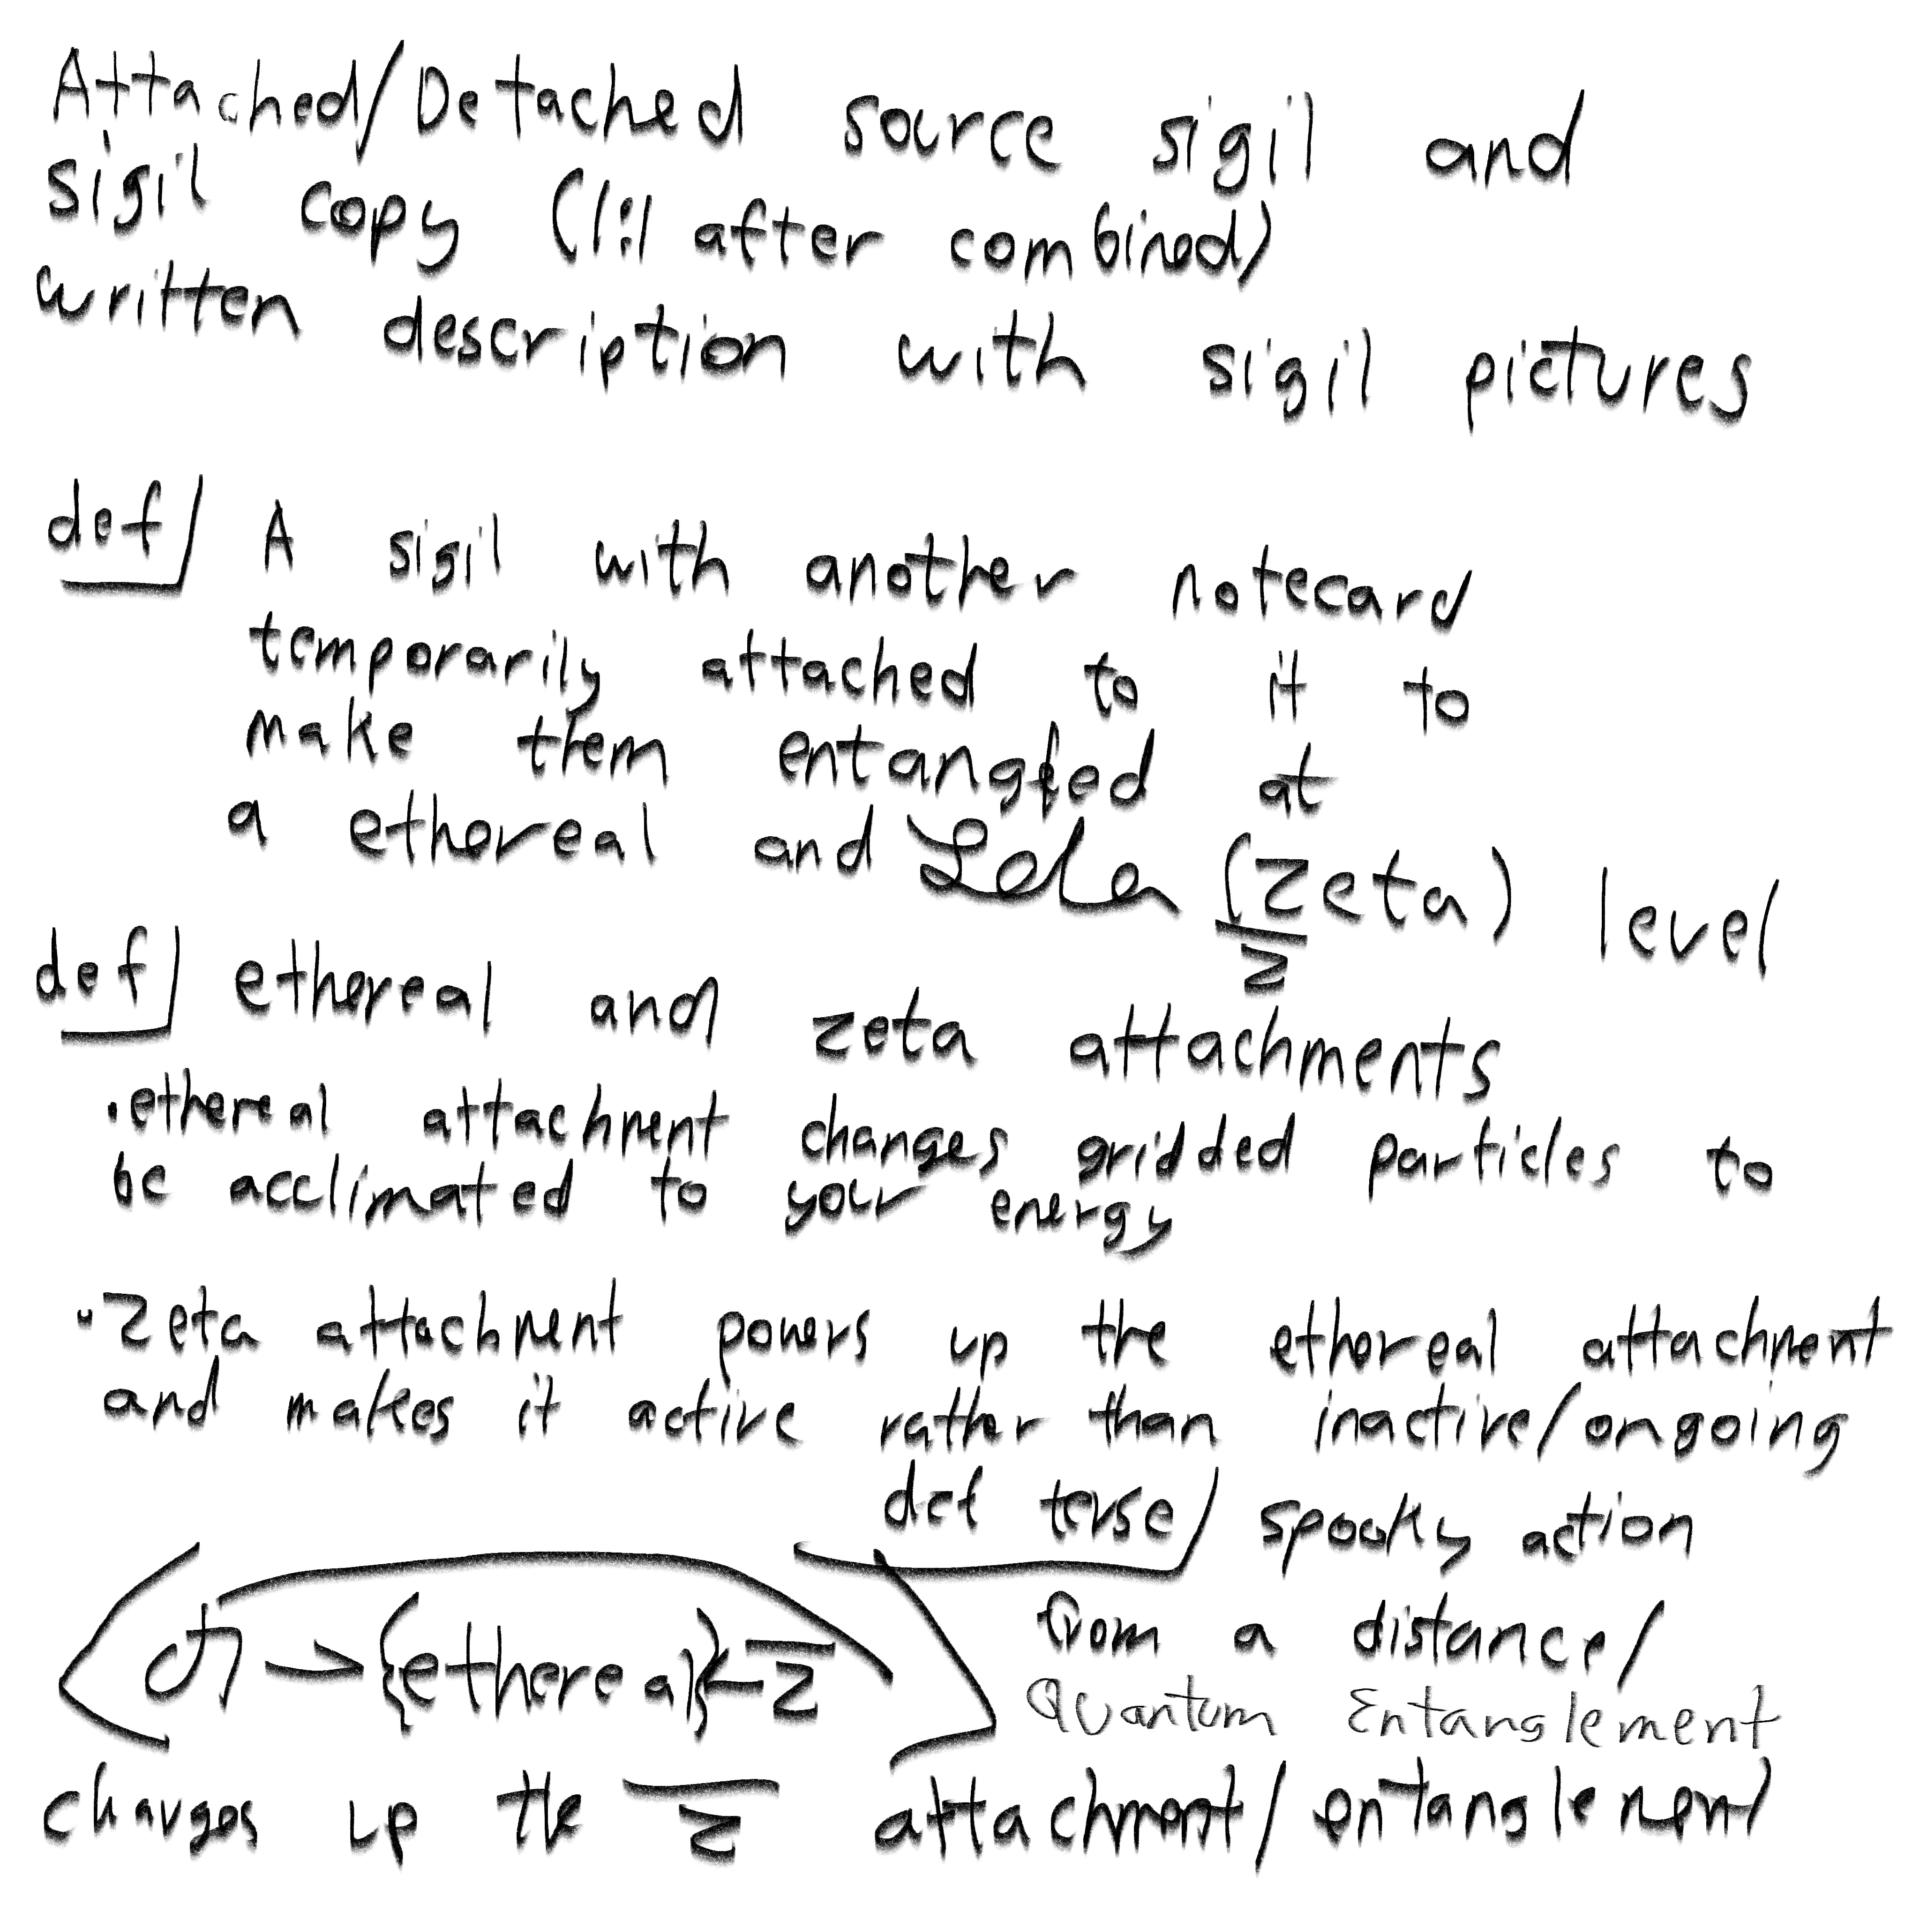 Attached/Detached source sigil and
sigil copy (1:1 after combined)
written description with sigil pictures
def/ A sigil with another notecard
temporarily attached to it to
make them entangled at
a ethereal and (zeta) level
z
def/ ethereal and zeta attachments
• ethereal attachment changes gridded particles to
be acclimated to your energy
• zeta attachment powers up the ethereal attachment
and makes it active rather than inactive/ongoing
def terse/ spooky action
from a distance/
Quantum Entanglement
→{ethereal}←z
charges up the z attachment/entanglement